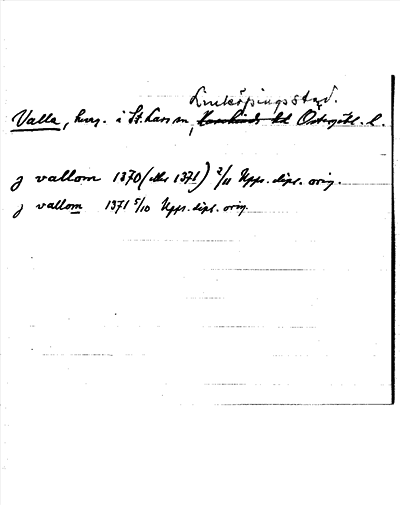 Linköpings stad.
Valla, herg. i St. Lars sn, Hanekinds hd Östergötl. l.
j vallom 1370 (eller 1371) 2/11 Upps. dipl. orig.
j vallom 1371 5/10 Upps. dipl. orig.